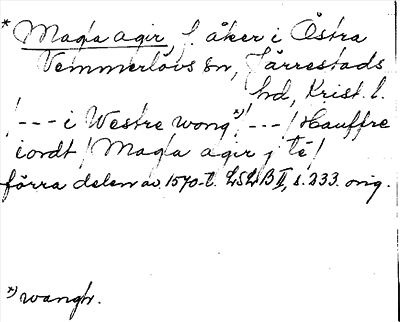 * Magla agir, f. åker i Östra
Vemmerlövs sn, Järrestads
hd, Krist. l.
/--- i Westre wong *)/ ---/ Hauffre
iordt / Magla agir j té /
förra delen av 1570-t. LSLB II, s. 233. orig.
*) wangh.